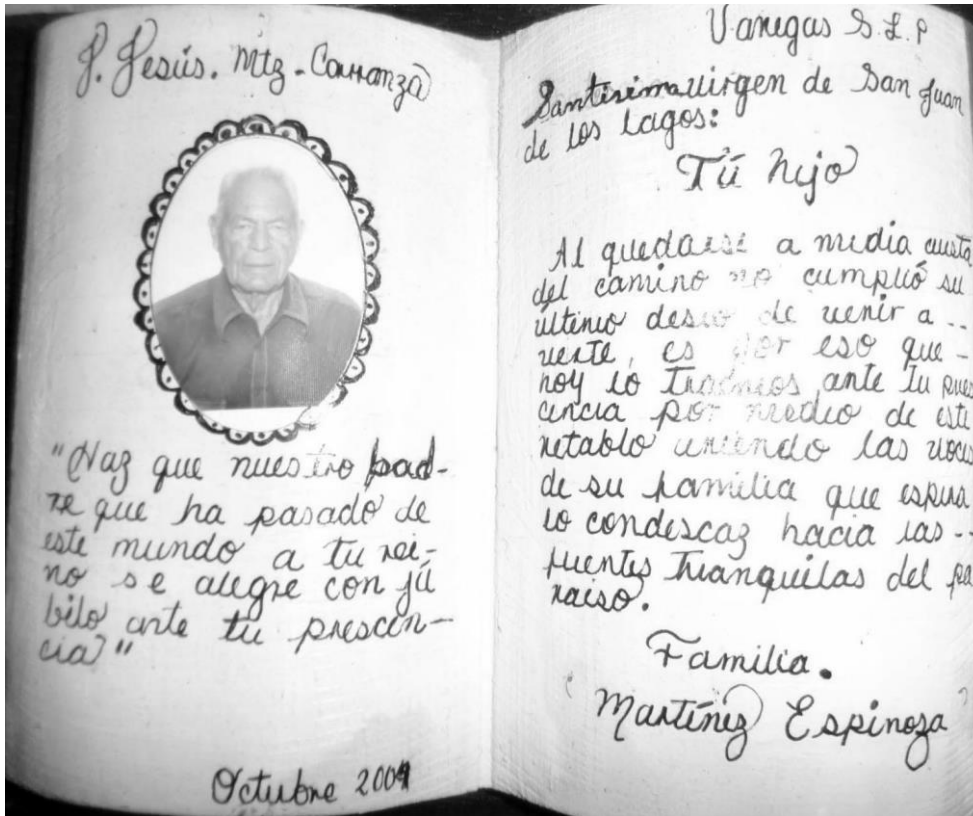 J. Jesús. Mtz. Carranza
"Haz que nuestro pad-
re que ha pasado de
este mundo a tu rei-
no se alegre con jú
bilo ante tu prescen-
cia"
Octubre 2009
Vanegas S.L.P
Santisima virgen de San Juan
de los Lagos:
Tú hijo
Al quedarse a media cuesta
del camino no cumplió su
último deseo de venir a --
verte, es por eso que -
hoy lo traémos ante tu pres
cencia por medio de este
retablo uniendo las voces
de su familia que espera
lo condescaz hacia las --
fuentes tranquilas del pa
raiso.
Familia.
Martínez Espinoza